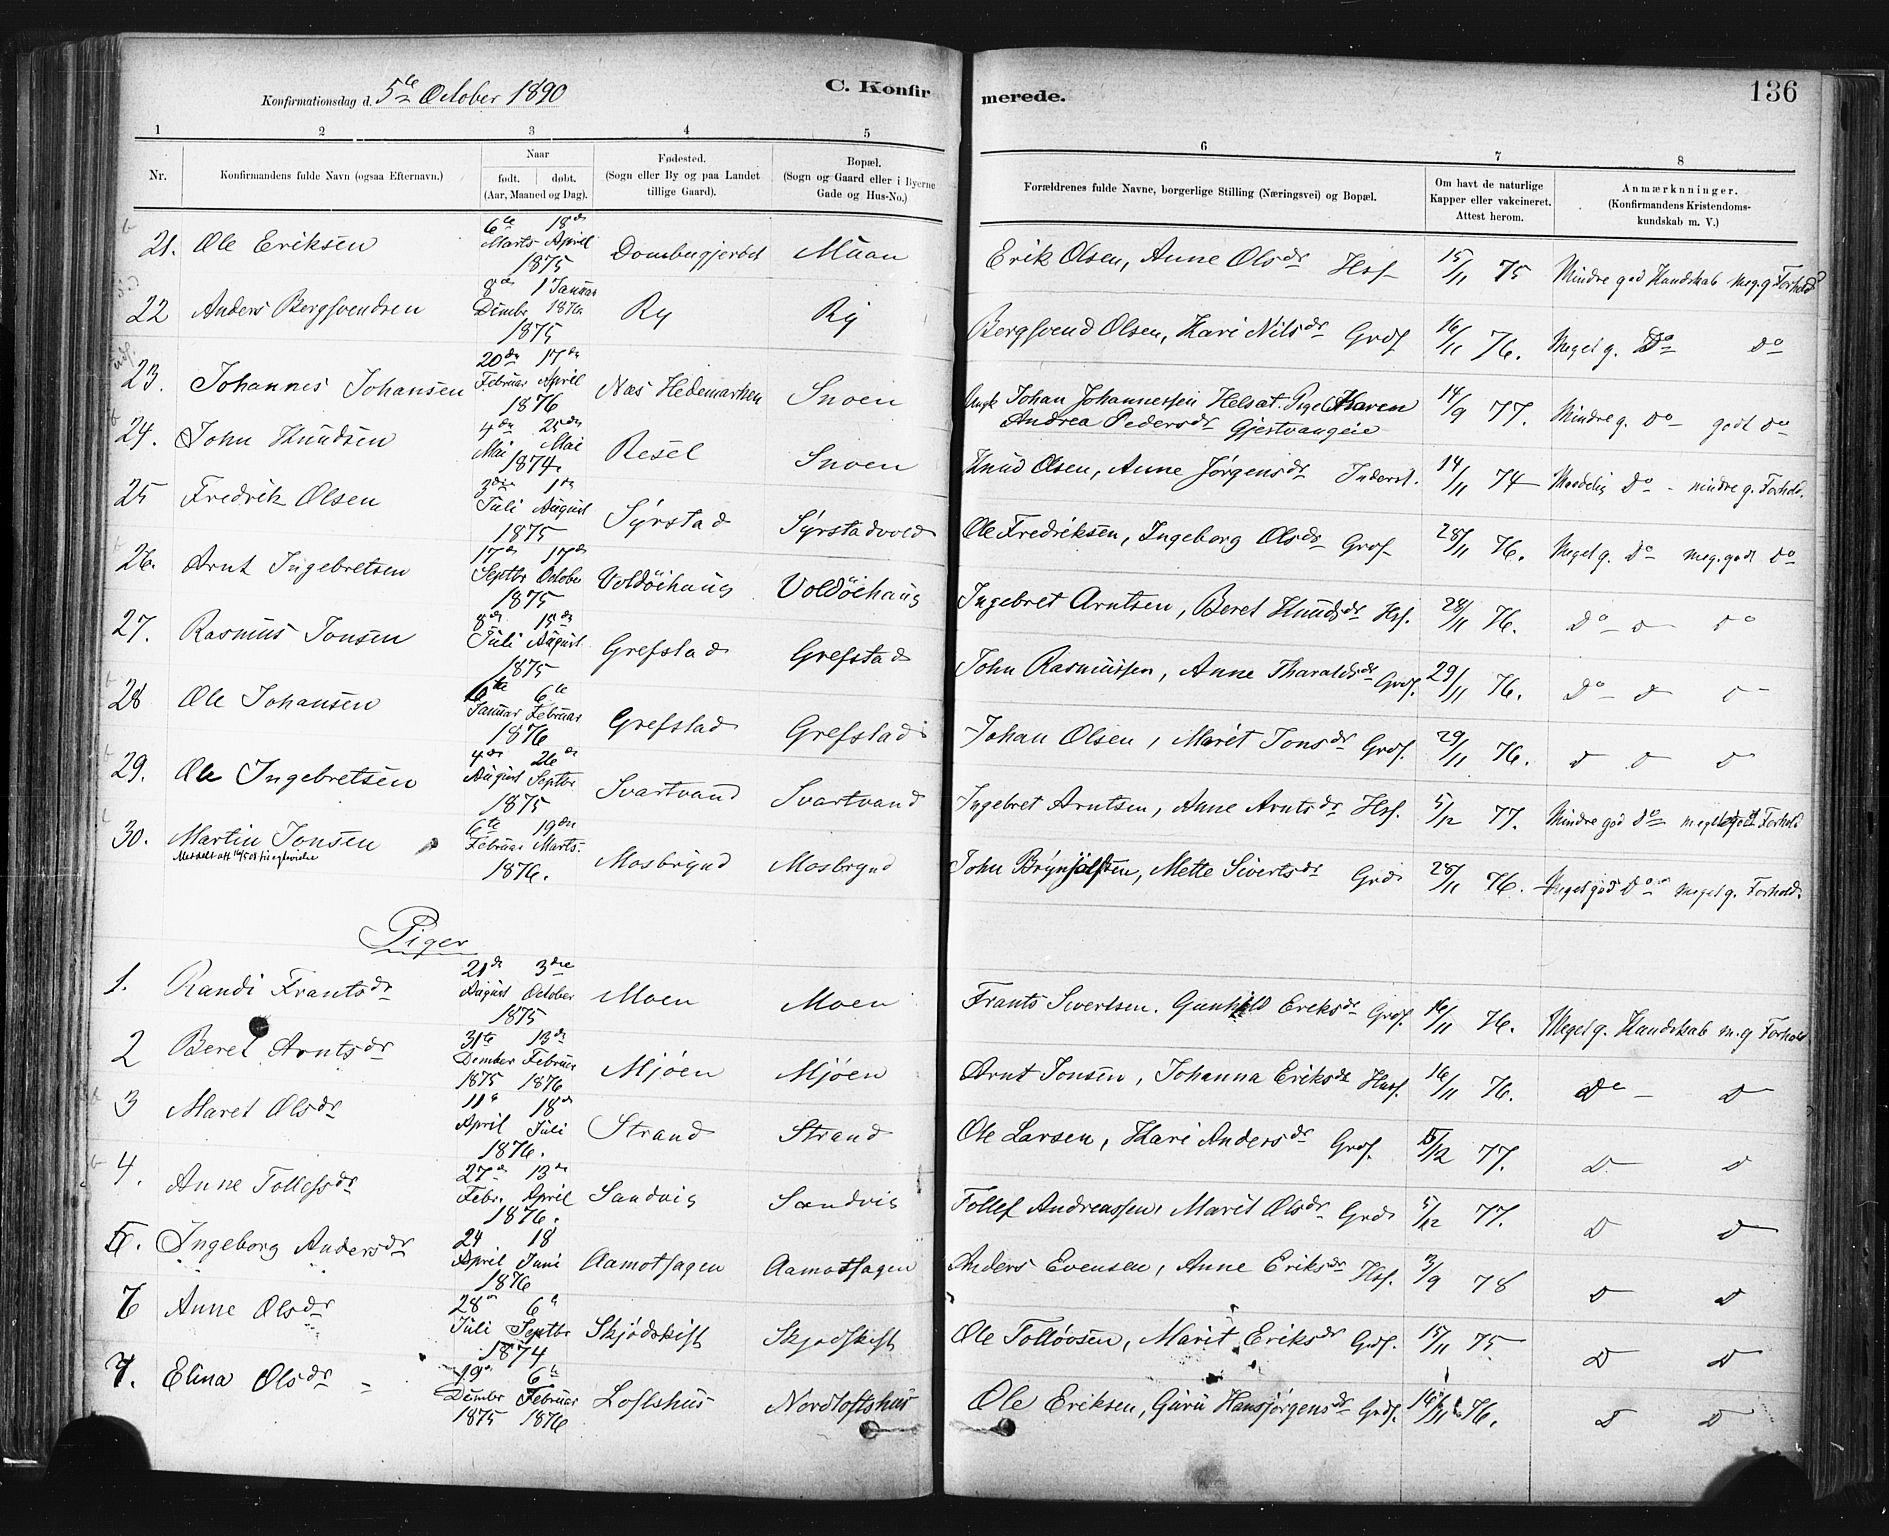 Konfirmationsdag d. 5te October 1890
C. Konfirmerede.
136
1 2 3 4 5 6 7 8
Nr.
Konfirmandens fulde Navn (ogsaa Efternavn).
Naar
født. døbt.
(Aar, Maaned og Dag).
Fødested.
(Sogn eller By og paa Landet
tillige Gaard).
Bopæl.
(Sogn og Gaard eller i Byerne
Gade og Hus-No.)
Forældrenes fulde Navne, borgerlige Stilling (Næringsvei) og Bopæl.
Om havt de naturlige
Kapper eller vakcineret.
Attest herom.
Anmærkninger.
(Konfirmandens Kristendoms-
kundskab m. V.)
21. Ole Eriksen 6te Marts 18de April 1875 Muan Erik Olsen, Anne Olsdr Hsf. 15/11 75 Mindre god Kundskab meg. g Forhold
22 Anders Bergsvendsen 8de Dcmbr 1875 1 Januar 1876 Ry Ry Bergsvend Olsen, Kari Nilsdr Grdf. 16/11 76. Meget g. Do do
23. Johannes Johansen 20de Februar 17de April 1876 Næs Hedemarken Snoen Ungk Johan Johannessen Helsat. Pige Karen
Andrea Pedersdr Gjestvangeie 14/9 77. Mindre g. Do godt do
24. John Knudsen 4de Mai 25de Mai 1874. Resel Snoen Knud Olsen, Anne Jørgensdr Inderst. 14/11 74 Maadelig Do - mindre g. Forhold.
25 Fredrik Olsen 3die Juli 1de August 1875 Syrstad Syrstadvold Ole Fredriksen, Ingeborg Olsdr Grdf 28/11 76. Meget g. Do meg. godt do
26. Arnt Ingebretsen 17de Septbr 17de Octobe 1875 Voldöihaug Voldöihaug Ingebret Arntsen, Beret Knudsdr Hsf. 28/11 76. Do d do
27. Rasmus Jonsen 8de Juli 15de August 1875 Grefstad Grefstad John Rasmussen, Anne Tharaldsdr Grdf. 29/11 76. Do d
28 Ole Johansen 6te Januar 6te Februar 1876 Grefstad Grefstad Johan Olsen, Marit Jonsdr Grdf. 29/11 76. d d d
29. Ole Ingebretsen 4de August 26de Septbr 1875 Svartvand Svartvand Ingebret Arntsen, Anne Arntsdr Hsf. 5/12 77. Mindre god do meget godt Forhold
30. Martin Jonsen 6te Februar 19de Marts. 1876. Mosbrynd Mosbrynd John Brynjolfsen, Mette Sivertsdr Grd 28/11 76. Meget god Do meget g. Forhold.
Piger
1. Randi Frantsdr 21de August 3die October 1875 Moen Moen Frants Sivertsen. Gunhild Eriksdr Grdf. 16/11 76. Meget g. Kundskab m. g Forhold
2 Beret Arntsdr 31te Dcmber 1875 13de Februar 1876 Mjöen Mjöen Arnt Jonsen, Johanna Eriksdr Husf. 16/11 76. Do D
3 Marit Olsdr 11te April 18de Juli 1876. Strand Strand Ole Larsen, Kari Andersdr Grdf. 5/12 77. D D
4. Anne Tollefsdr 27de Febr. 13de April 1876. Sandvig Sandvig Tollef Andreassen, Marit Olsdr Grd 5/12 77. D D
5. Ingeborg Andersdr 24 April 18 Juni 1876 Aamotsagen Aamotsagen Anders Evensen, Anne Eriksdr Hsf. 3/9 78 D D
6 Anne Olsdr 28de Juli 6te Septbr 1874 Skjødskift Skjødskift Ole Tolløvsen, Marit Eriksdr Grdf. 15/11 75 D D
7. Elina Olsdr 19de Dcmber 1875 6te Februar 1876 Loftshus Nordloftshus Ole Eriksen, Guru Hansjørgensdr Grdf. 16/11 76. D D